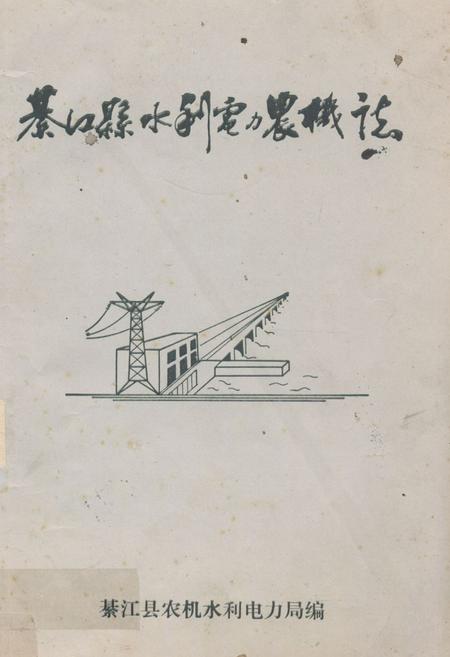 綦江縣水利電力農機誌
綦江县农机水利电力局编